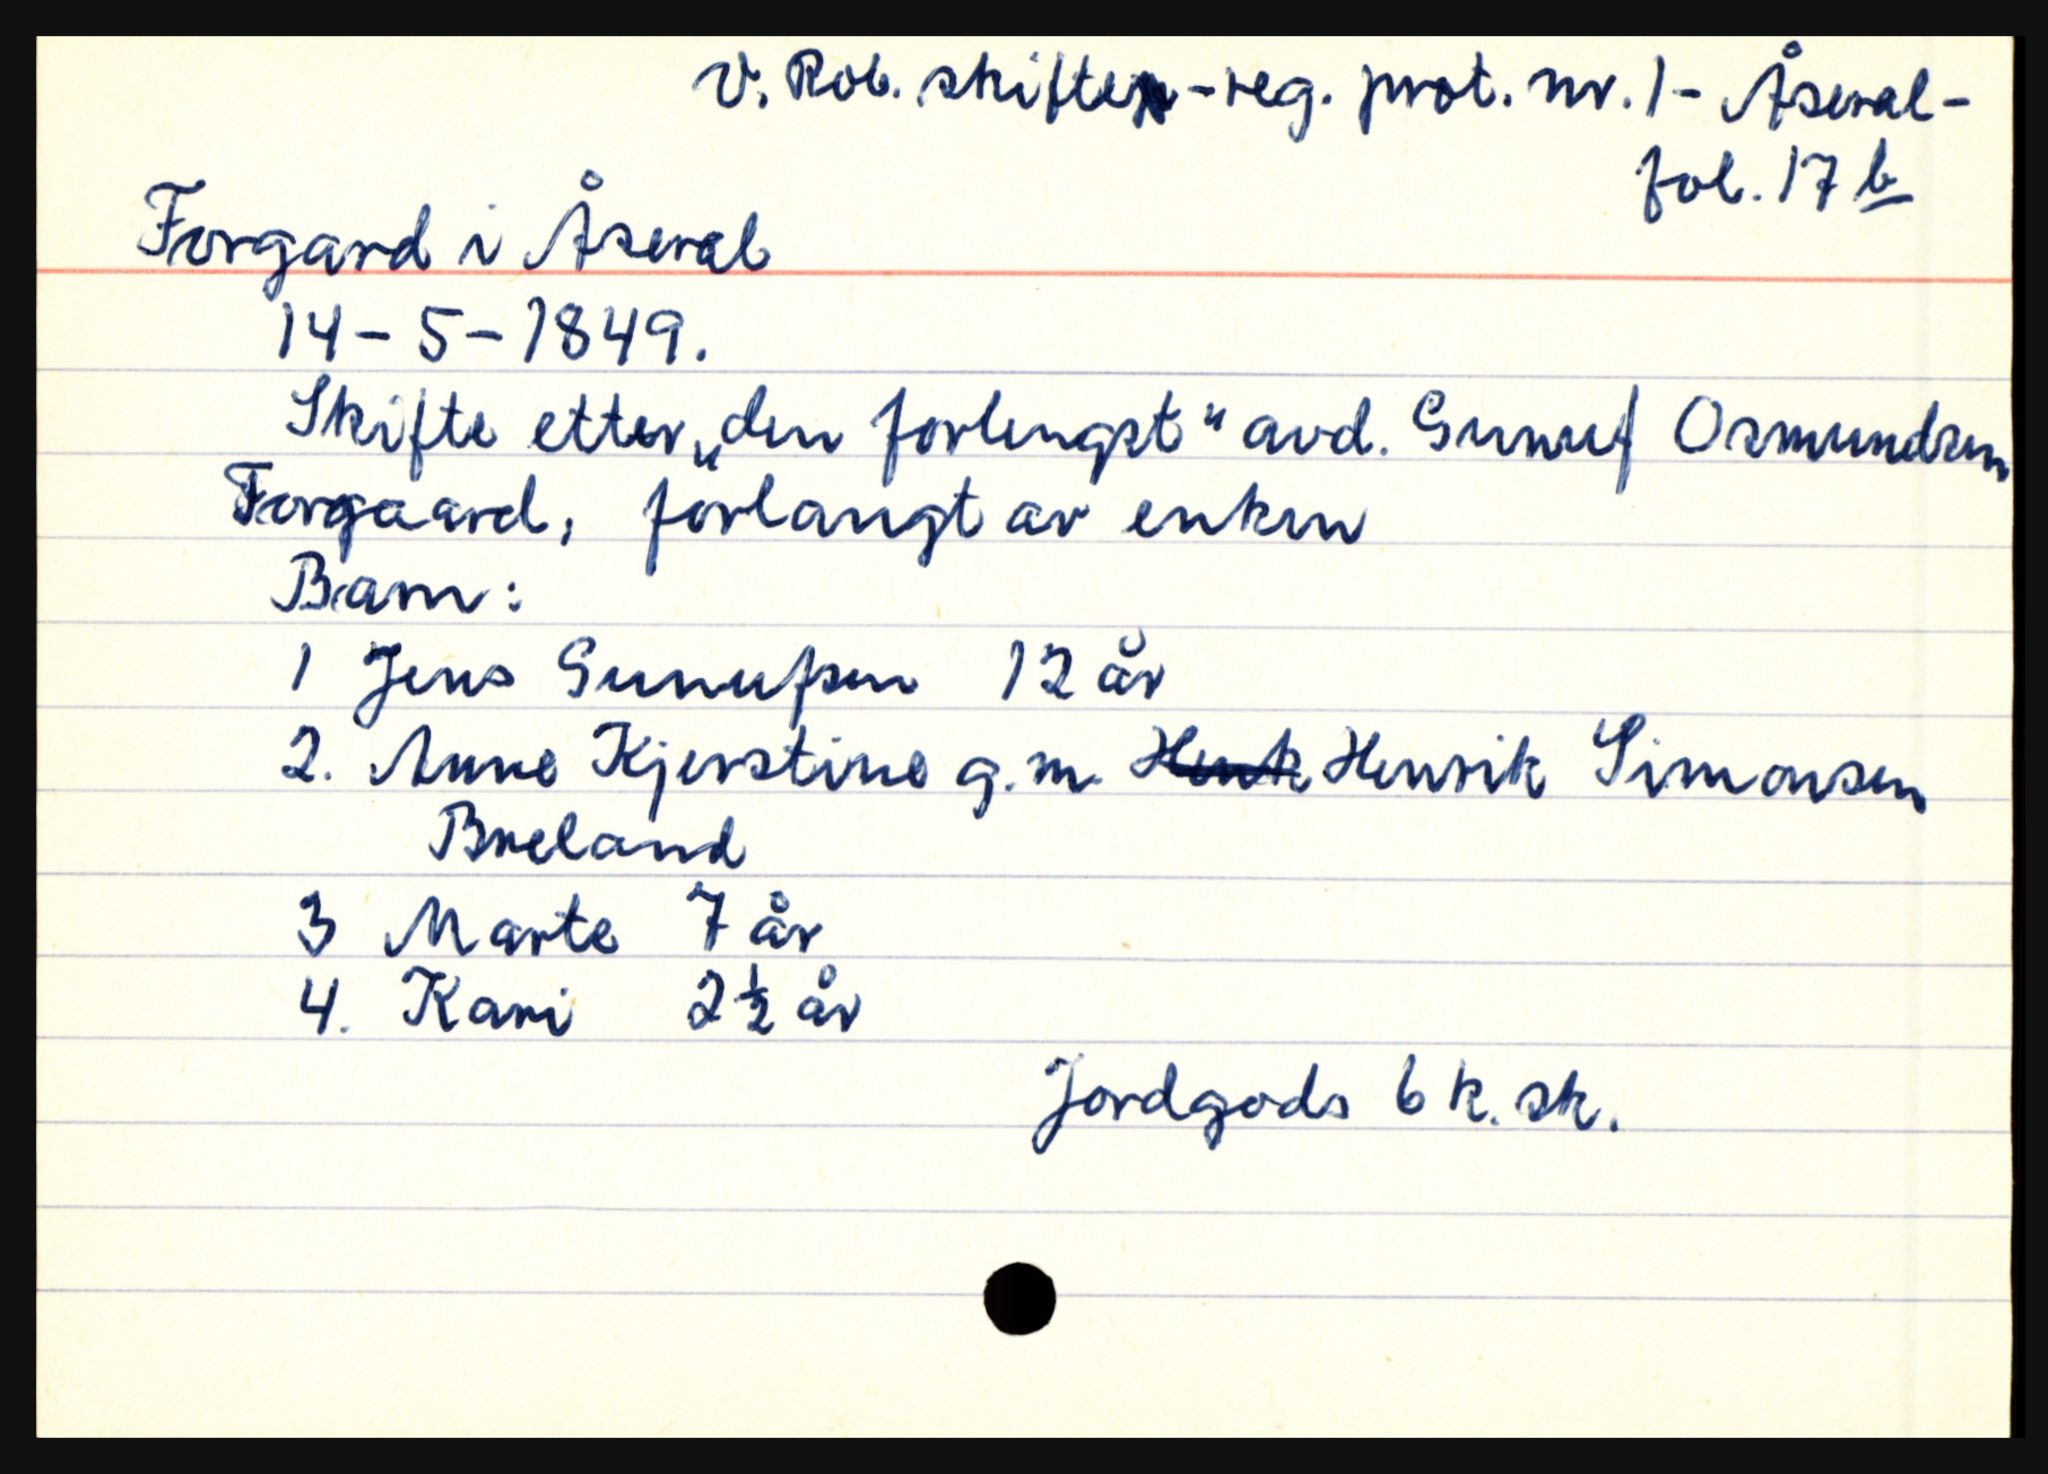 V. Rob. skifte-reg. prot. nr. 1 - Åseral -
fol. 17 b
Forgard i Åseral
14 - 5 - 1849.
Skifte etter „den forlengst" avd. Gunuf Osmundsen
Forgaard, forlangt av enken
Barn:
1 Jens Gunufsen 12 år
2. Anne Kjerstine g.m. Henrik Simonsen
Breland
3 Marte 7 år
4. Kari 2 ½ år
Jordgods 6 k. sk.